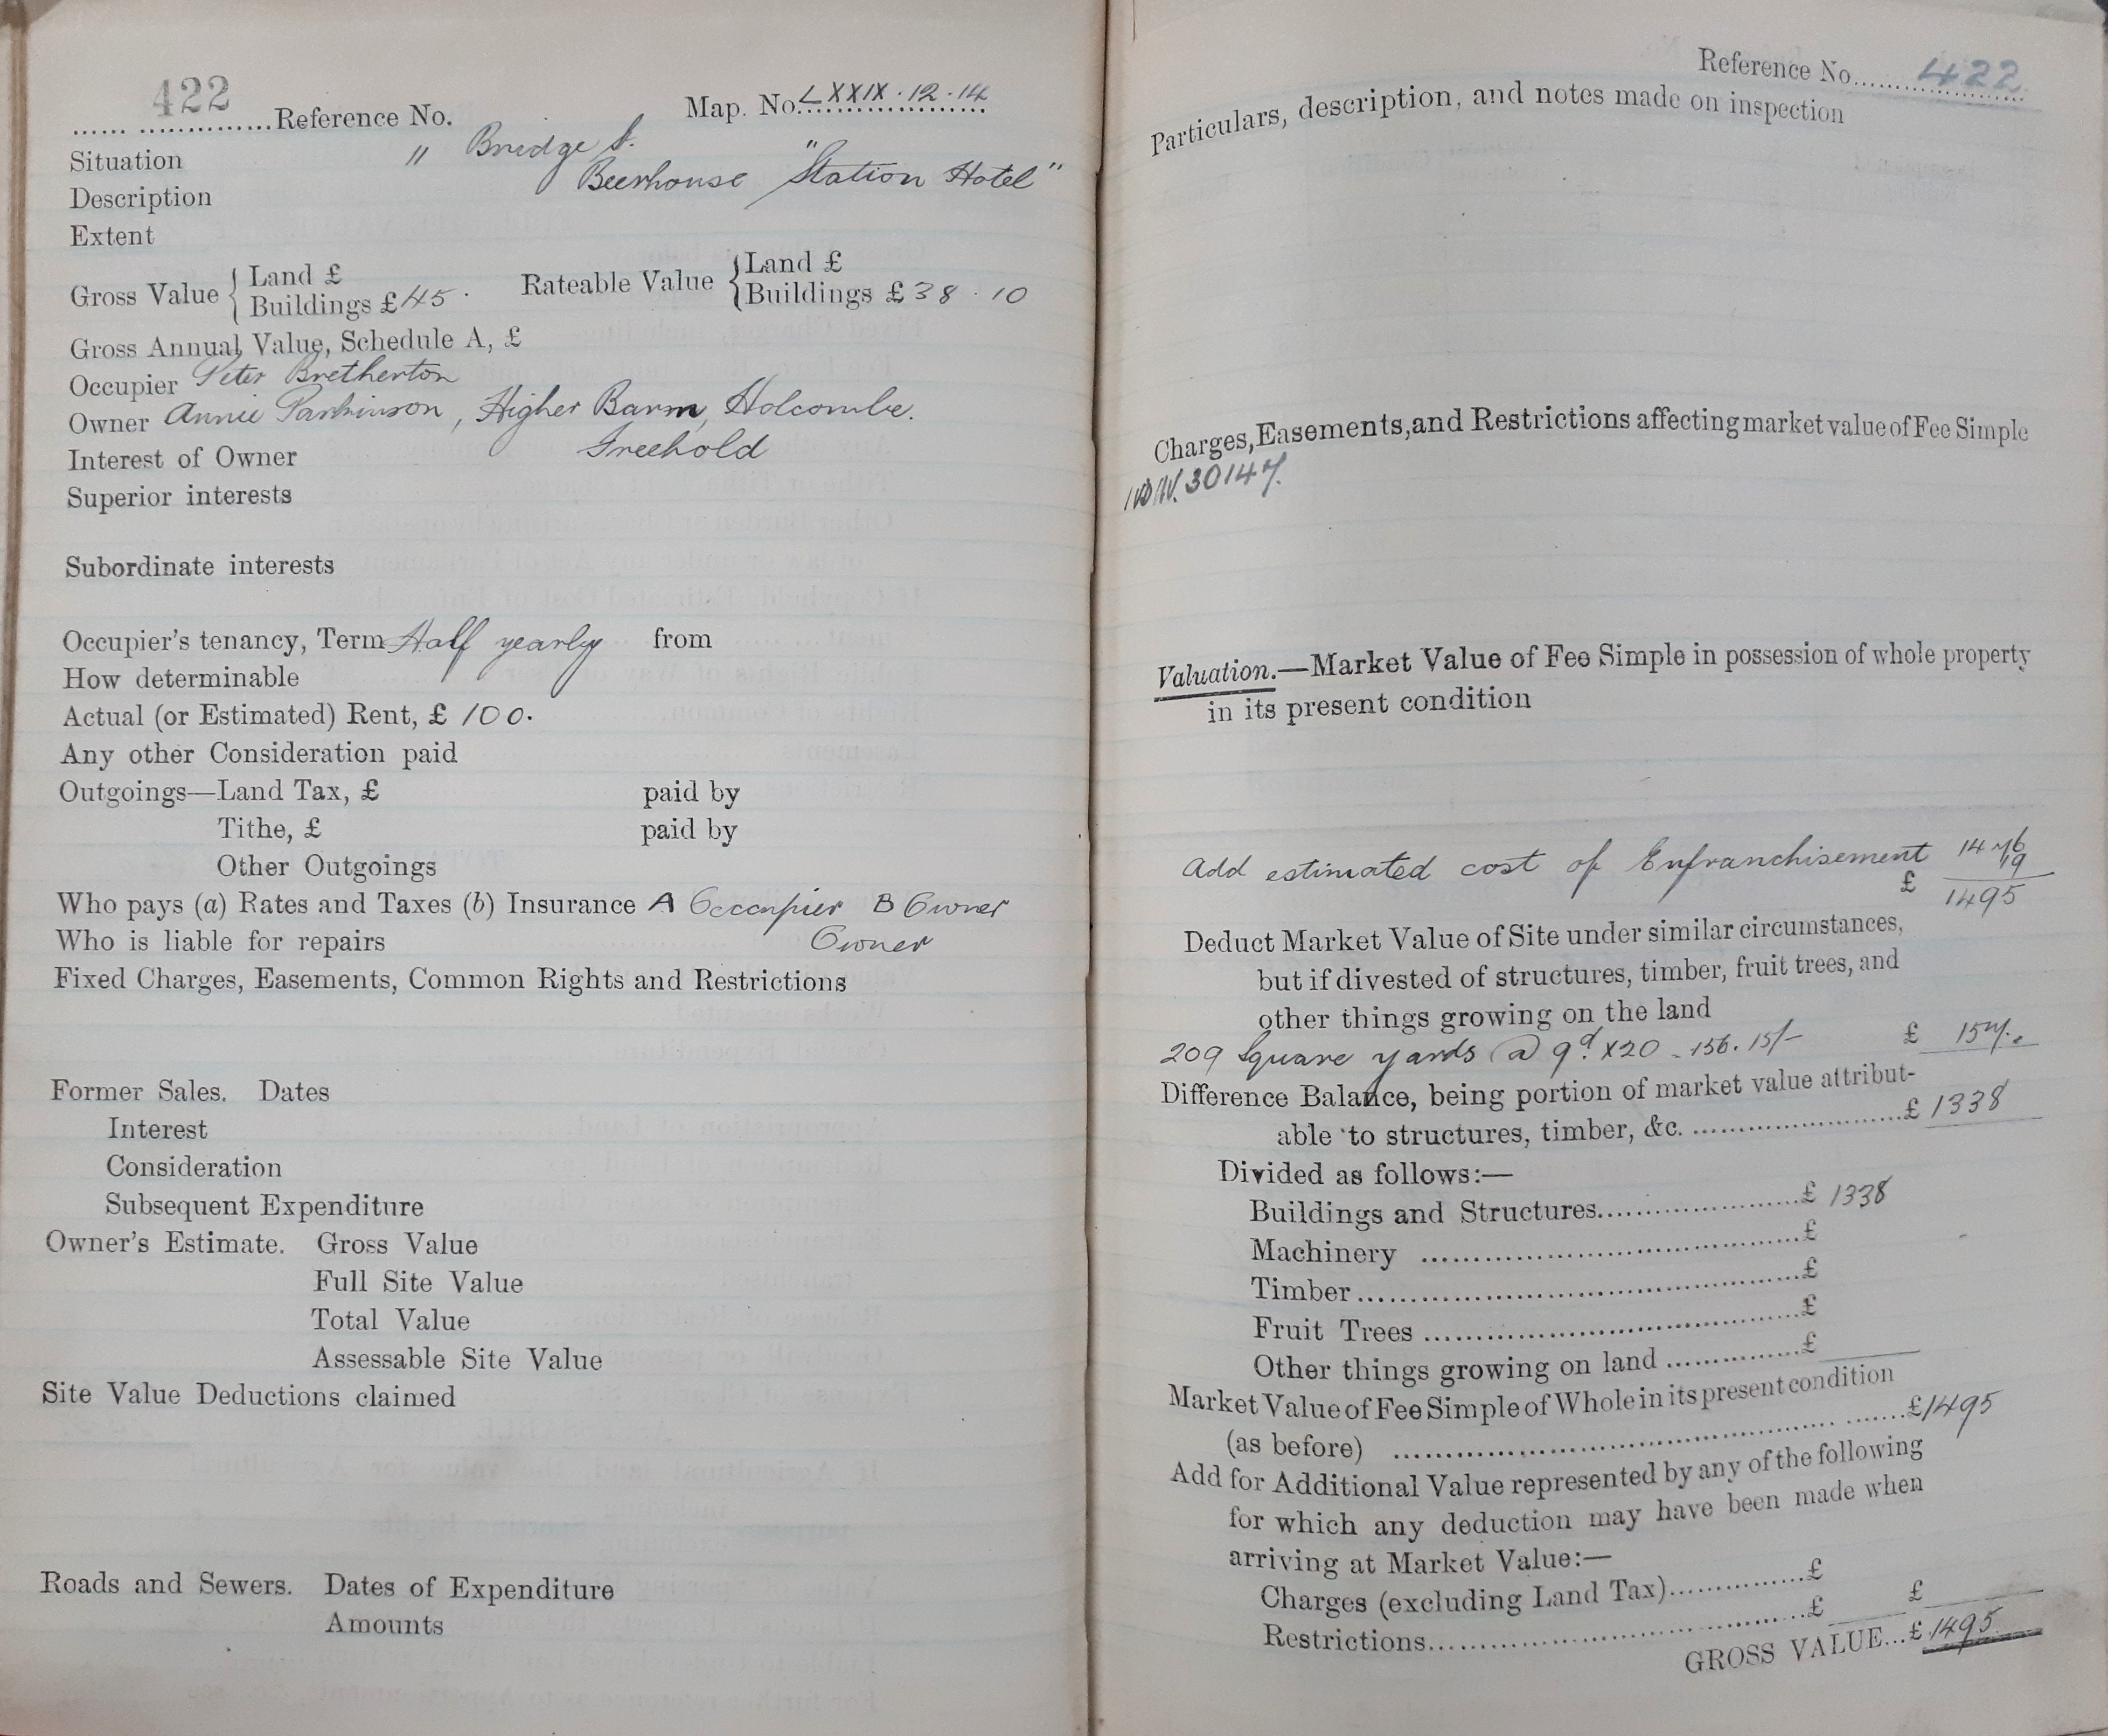 422 Reference No. Map. No. LXXIX.12.14
Situation " Bridge St.
Description Beerhouse "Station Hotel"
Extent
Gross Value { Land £
Buildings £45. Rateable Value { Land £
Buildings £38.10
Gross Annual Value, Schedule A, £
Occupier Peter Bretherton
Owner Annie Parkinson, Higher Barn, Holcombe.
Interest of Owner Freehold
Superior interests
Subordinate interests
Occupier's tenancy, Term Half yearly from
How determinable
Actual (or Estimated) Rent, £ 100.
Any other Consideration paid
Outgoings—Land Tax, £ paid by
Tithe, £ paid by
Other Outgoings
Who pays (a) Rates and Taxes (b) Insurance A Occupier B Owner
Who is liable for repairs Owner
Fixed Charges, Easements, Common Rights and Restrictions
Former Sales. Dates
Interest
Consideration
Subsequent Expenditure
Owner's Estimate. Gross Value
Full Site Value
Total Value
Assessable Site Value
Site Value Deductions claimed
Roads and Sewers. Dates of Expenditure
Amounts
Reference No. 422
Particulars, description, and notes made on inspection
Charges, Easements, and Restrictions affecting market value of Fee Simple
30147.
Valuation.—Market Value of Fee Simple in possession of whole property
in its present condition
1476
Add estimated cost of Enfranchisement 19
£ 1495
Deduct Market Value of Site under similar circumstances,
but if divested of structures, timber, fruit trees, and
other things growing on the land
209 Square yards @ 9d. X20 - 156.15/- £ 157.
Difference Balance, being portion of market value attribut-
able to structures, timber, &c. £ 1338
Divided as follows:—
Buildings and Structures £ 1338
Machinery £
Timber £
Fruit Trees £
Other things growing on land £
Market Value of Fee Simple of Whole in its present condition
(as before) £1495
Add for Additional Value represented by any of the following
for which any deduction may have been made when
arriving at Market Value:—
Charges (excluding Land Tax) £
Restrictions £ £
GROSS VALUE...£ 1495